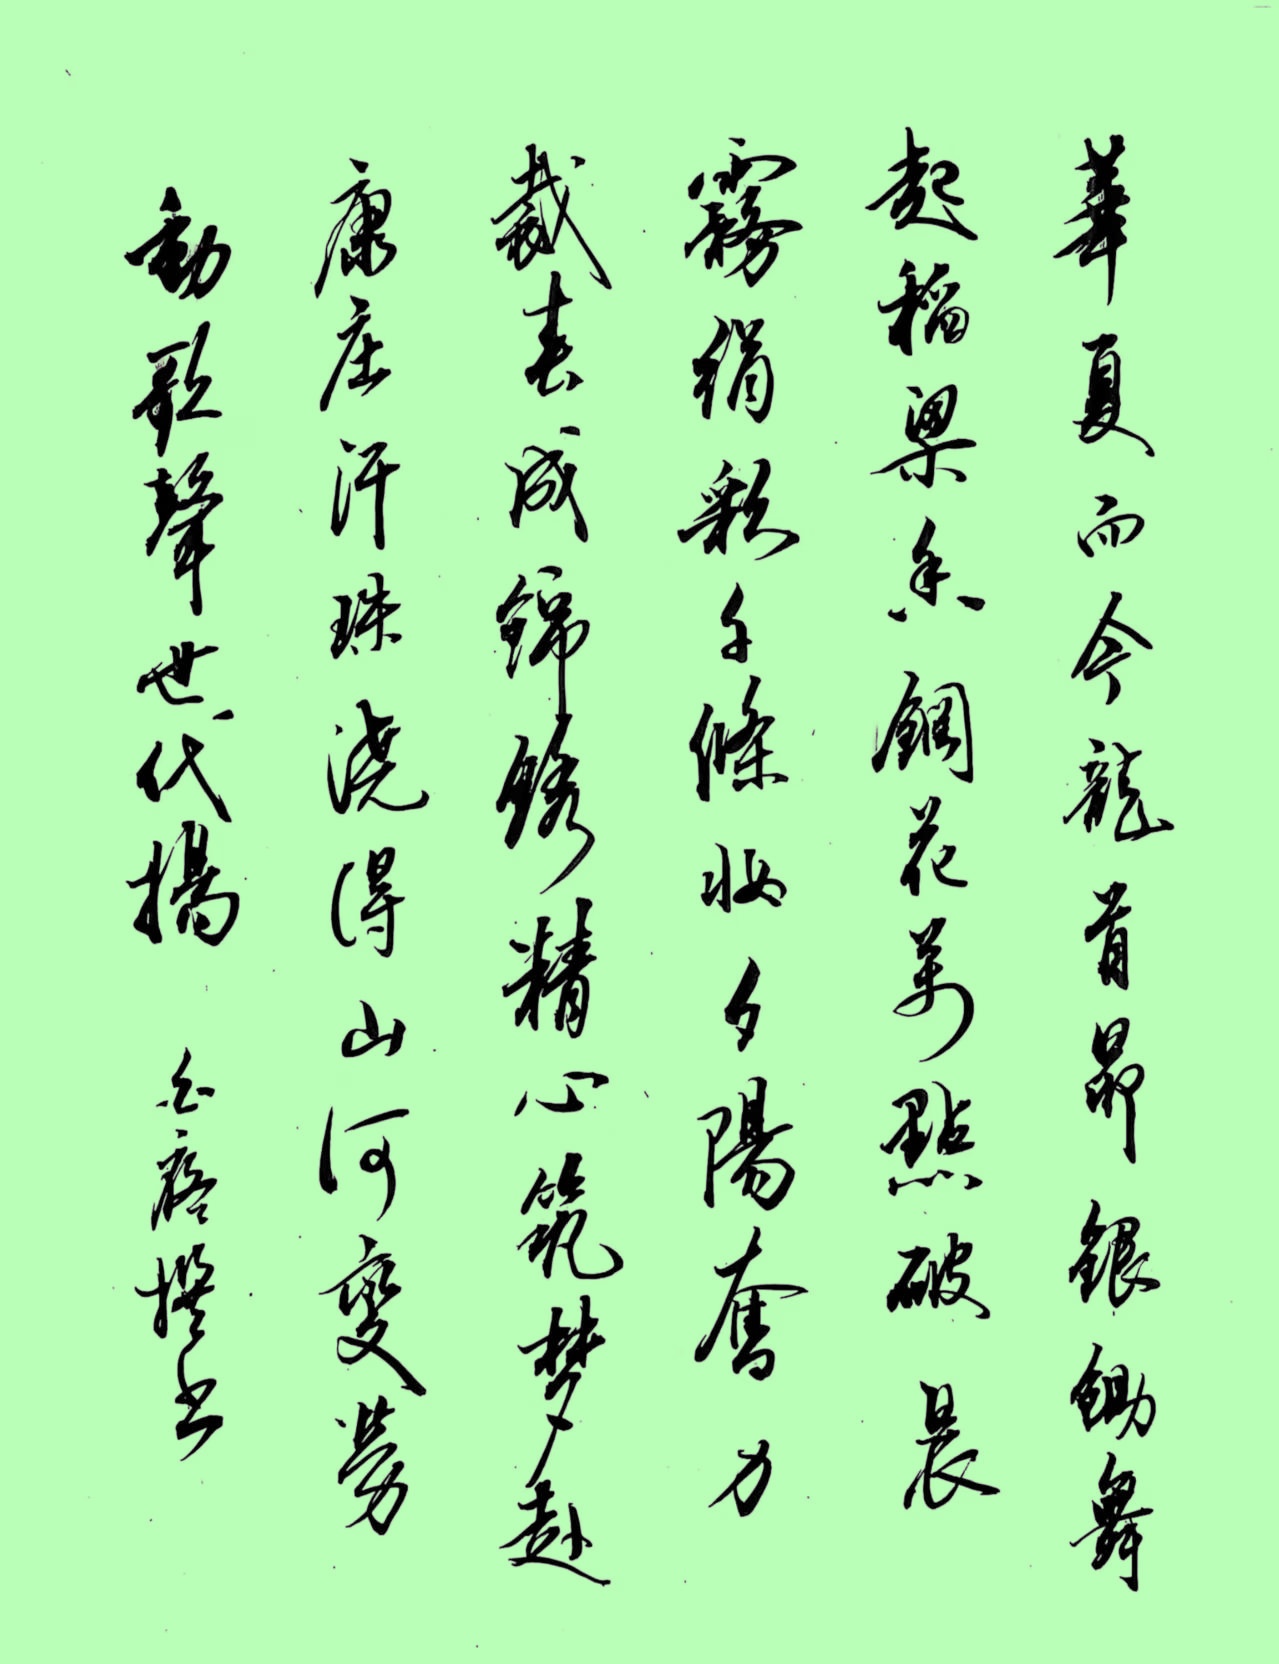 華夏而今龍首昂銀鋤舞
起稻粱香鋼花萬點破晨
霧絹彩千條妝夕陽奮力
裁春成錦綉精心筑梦赴
康庄汗珠澆得山河變勞
動歌聲世代揚 撰書